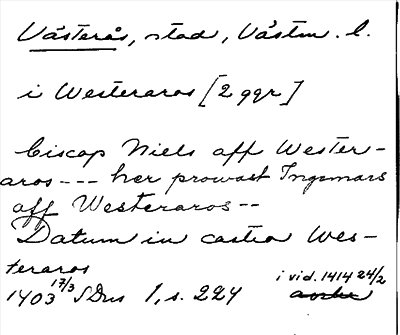 Västerås, stad, Västm. l.
i Westeraros [2 ggr]
biscop Niels aff Wester-
aros --- her prowast Ingemars
aff Westeraros --
Datum in castro Wes-
teraros
1403 17/3 SDns 1, s. 224 i vid. 1414 24/2